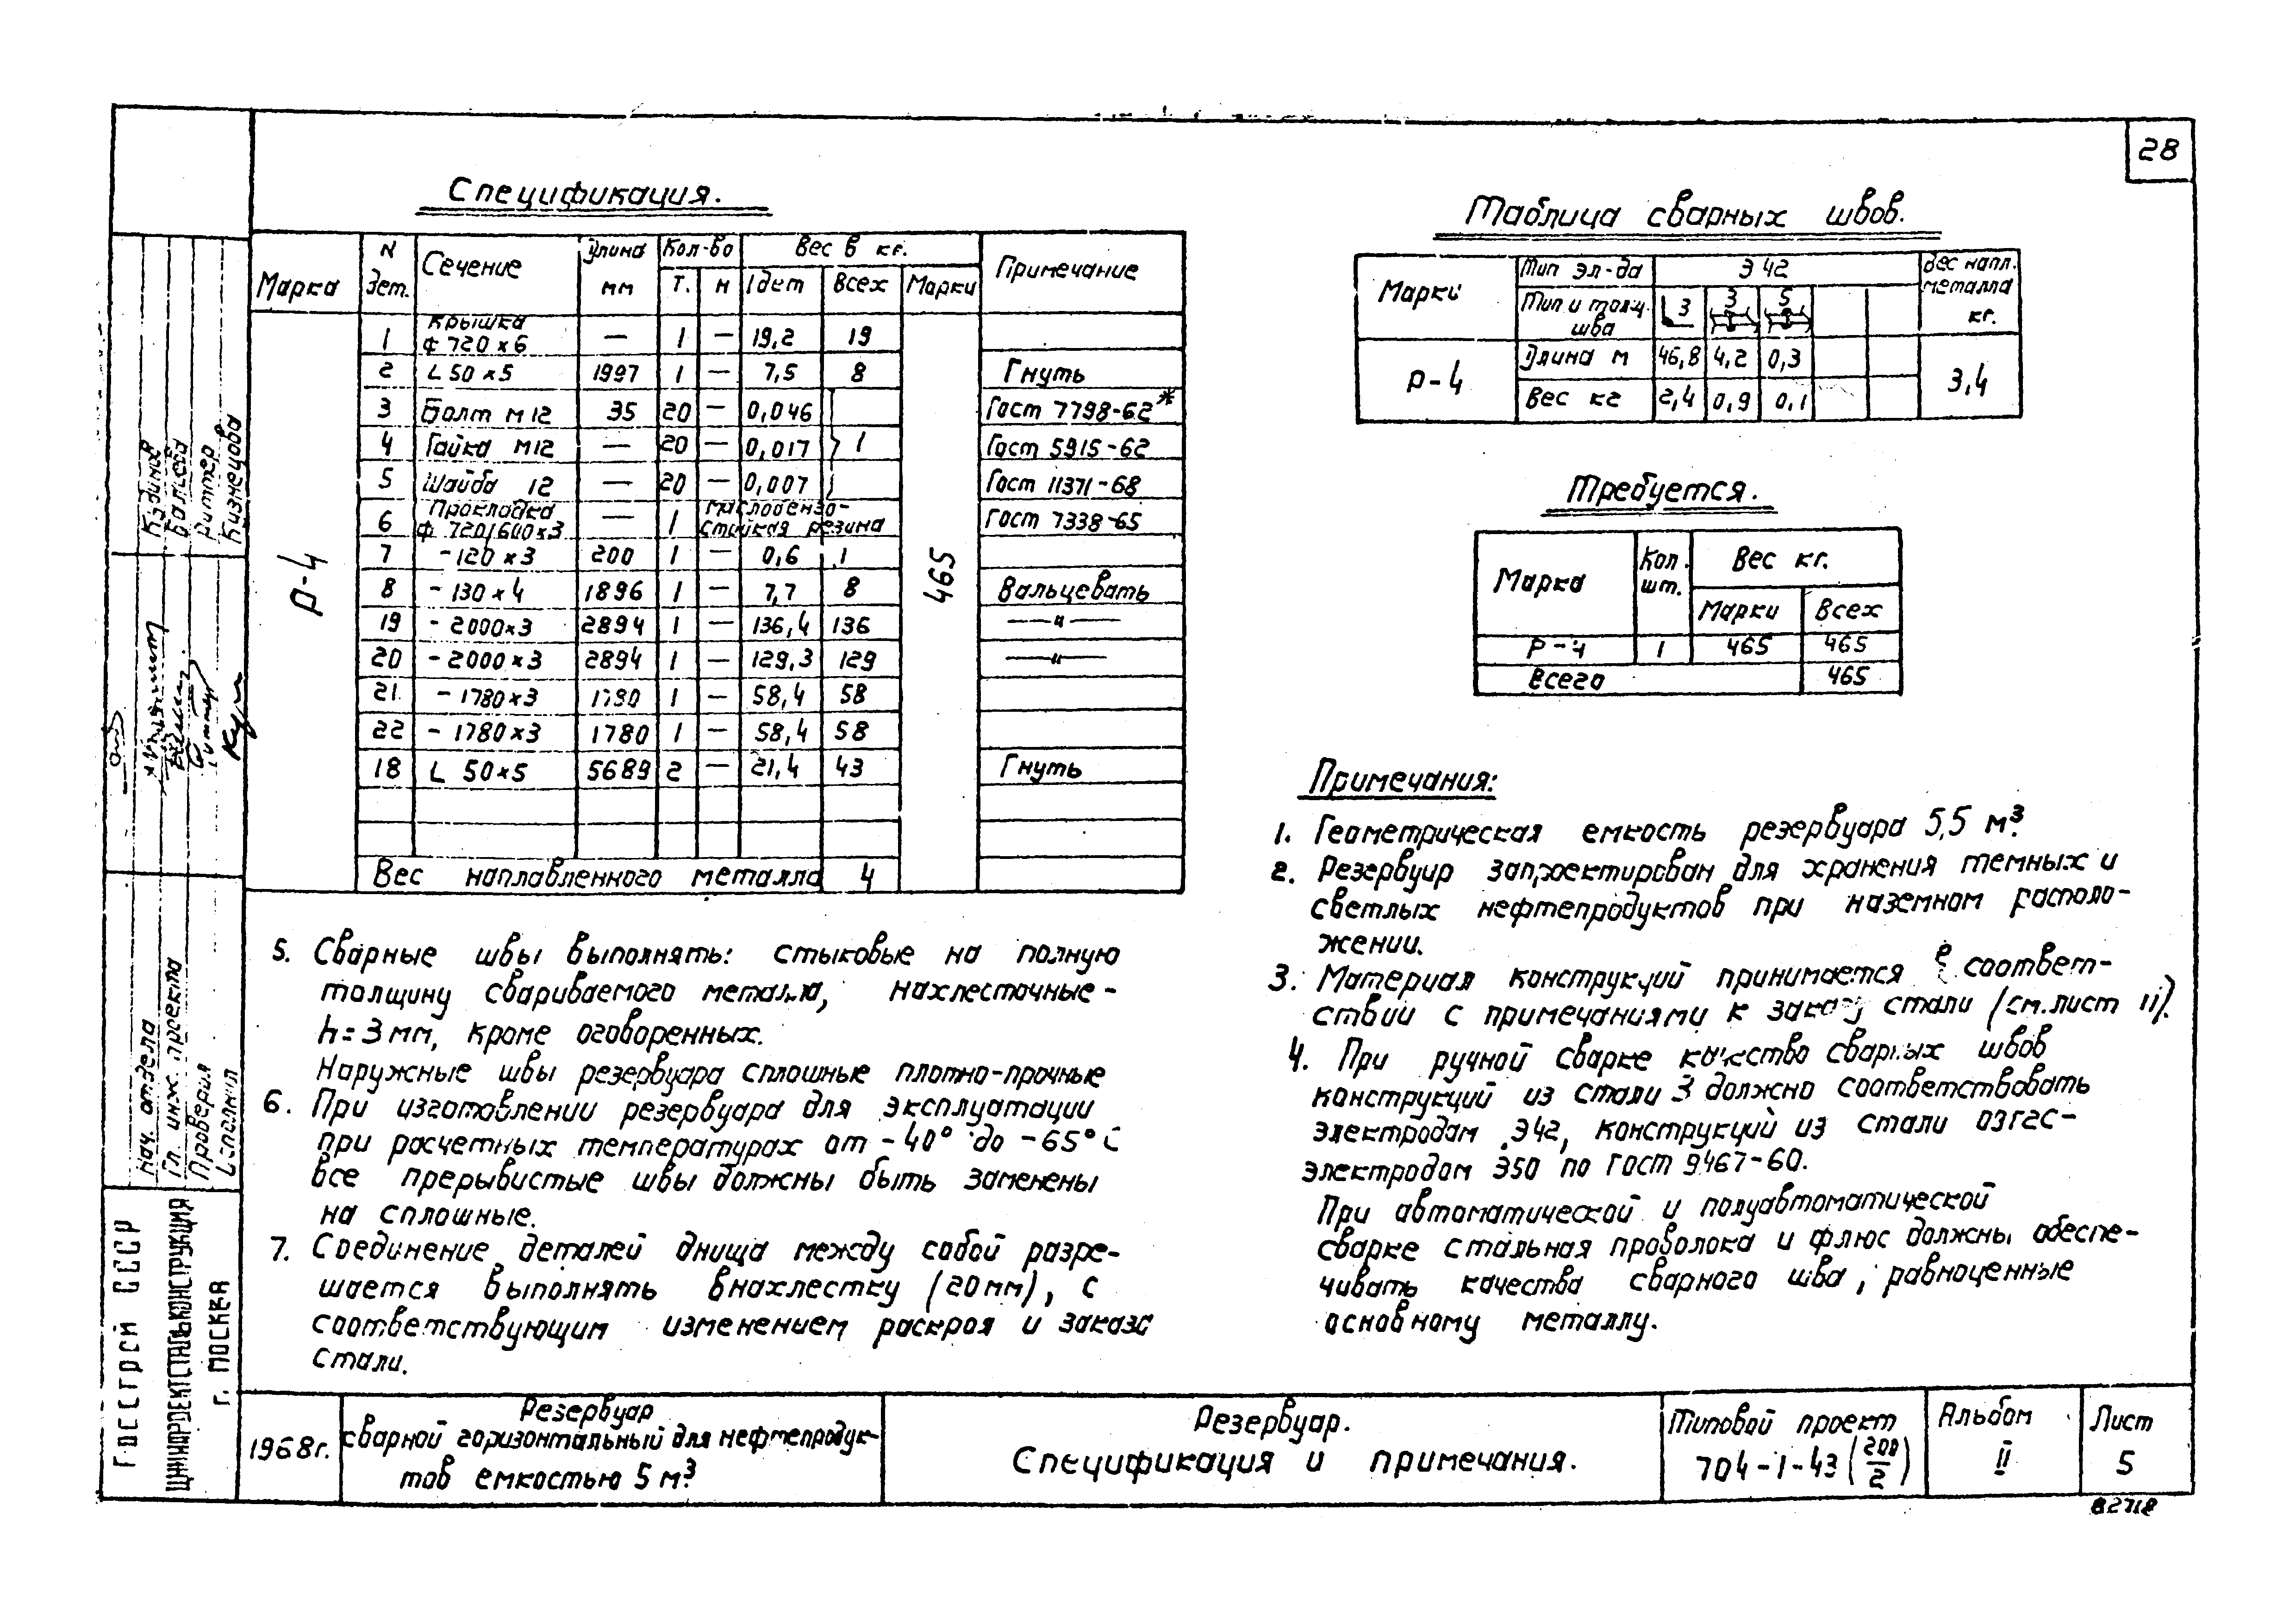 28
Спецификация.
Марка N дет. Сечение Длина мм Кол-во Вес в кг. Примечание
Т. Н 1 дет Всех Марки
Р-4 465
1 Крышка ф 720 х 6 — 1 — 19,2 19
2 L 50 х 5 1997 1 — 7,5 8 Гнуть
3 Болт М 12 35 20 — 0,046 Гост 7798-62*
4 Гайка М12 — 20 — 0,017 1 Гост 5915-62
5 Шайба 12 — 20 — 0,007 Гост 11371-68
6 Прокладка ф 720/600х3 — 1 маслобензостойкая резина Гост 7338-65
7 - 120 х 3 200 1 — 0,6 1
8 - 130 х 4 1896 1 — 7,7 8 Вальцевать
19 - 2000х3 2894 1 — 136,4 136 —"—
20 - 2000 х 3 2894 1 — 129,3 129 —"—
21 - 1780х3 1780 1 — 58,4 58
22 - 1780х3 1780 1 — 58,4 58
18 L 50х5 5689 2 — 21,4 43 Гнуть
Вес наплавленного металла 4
5. Сварные швы выполнять: стыковые на полную
толщину свариваемого металла, нахлесточные -
h=3мм, кроме оговоренных.
Наружные швы резервуара сплошные плотно-прочные
6. При изготовлении резервуара для эксплуатации
при расчетных температурах от -40° до -65°С
все прерывистые швы должны быть заменены
на сплошные.
7. Соединение деталей днища между собой разре-
шается выполнять внахлестку (20мм), с
соответствующим изменением раскроя и заказа
стали.
Таблица сварных швов.
Марки Тип эл-да Э 42 Вес напл. металла кг.
Тип и толщ. шва 3 3 5
Р-4 Длина м 46,8 4,2 0,3 3,4
Вес кг 2,4 0,9 0,1
Требуется.
Марка Кол. шт. Вес кг.
Марки Всех
Р-4 1 465 465
Всего 465
Примечания:
1. Геометрическая емкость резервуара 5,5 м³.
2. Резервуар запроектирован для хранения темных и
светлых нефтепродуктов при наземном располо-
жении.
3. Материал конструкций принимается в соответ-
ствии с примечаниями к заказу стали (см.лист 11).
4. При ручной сварке качество сварных швов
конструкций из стали 3 должно соответствовать
электродам Э42, конструкций из стали 09Г2С-
электродам Э50 по Гост 9467-60.
При автоматической и полуавтоматической
сварке стальная проволока и флюс должны обеспе-
чивать качества сварного шва, равноценные
основному металлу.
Нач. отдела
Гл. инж. проекта
Проверил
Исполнил
Риттер
Кузнецова
Госстрой СССР
ЦНИИПРОЕКТСТАЛЬКОНСТРУКЦИЯ
г. МОСКВА
1968г.
Резервуар
сварной горизонтальный для нефтепродук-
тов емкостью 5 м³
Резервуар.
Спецификация и примечания.
Типовой проект
704-1-43 (200/2)
Альбом
II
Лист
5